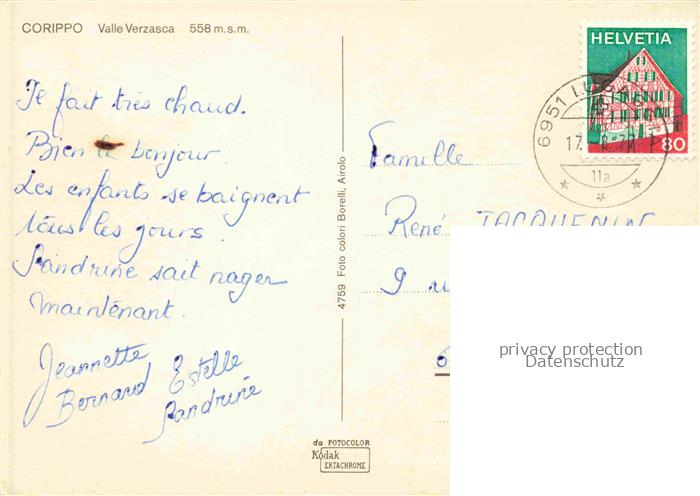 CORIPPO Valle Verzasca 558 m.s.m.
Il fait très chaud.
Bien le bonjour.
Les enfants se baignent
tous les jours.
Sandrine sait nager
maintenant.
Jeannette
Bernard Estelle
Sandrine
4759 Foto colori Borelli, Airolo
da FOTOCOLOR
Kodak
EKTACHROME
HELVETIA
80
6951
17.
11a
Famille
René JACQUEMIN
9
privacy protection
Datenschutz